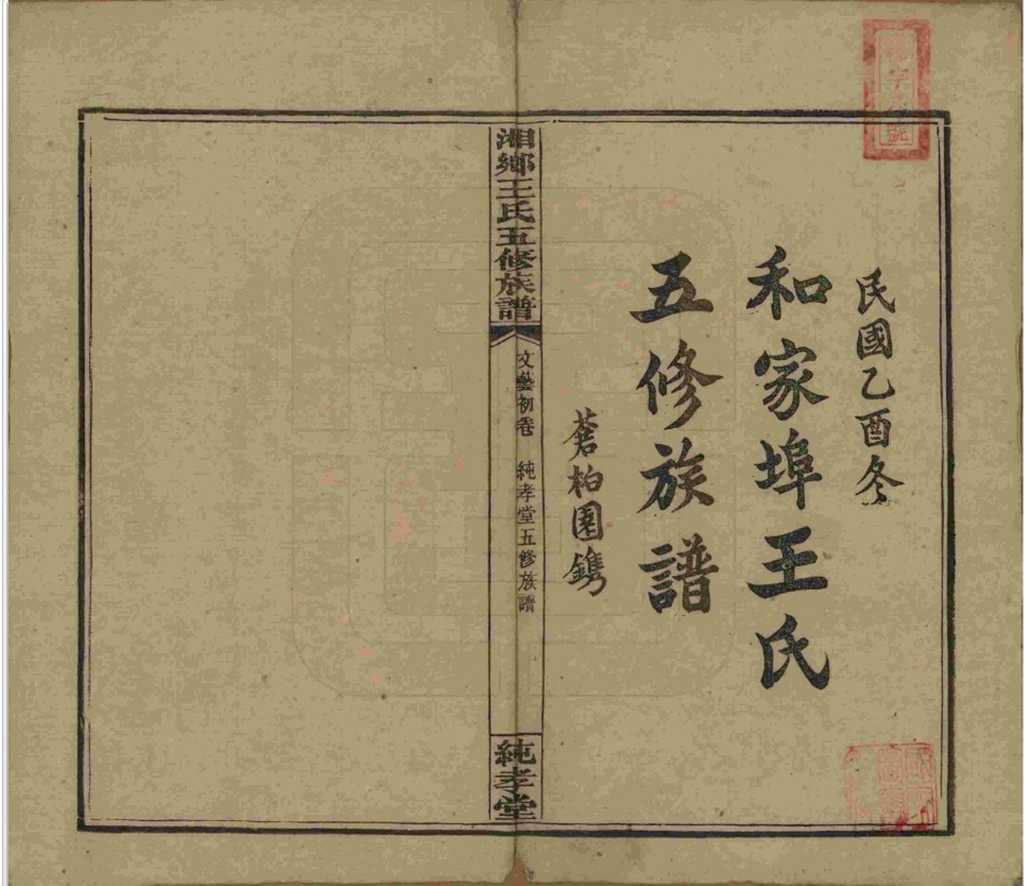 民國乙酉冬
和家埠王氏
五修族譜
蒼柏園鐫
湘鄉王氏五修族譜
文藝初卷 純孝堂五修族譜
純孝堂